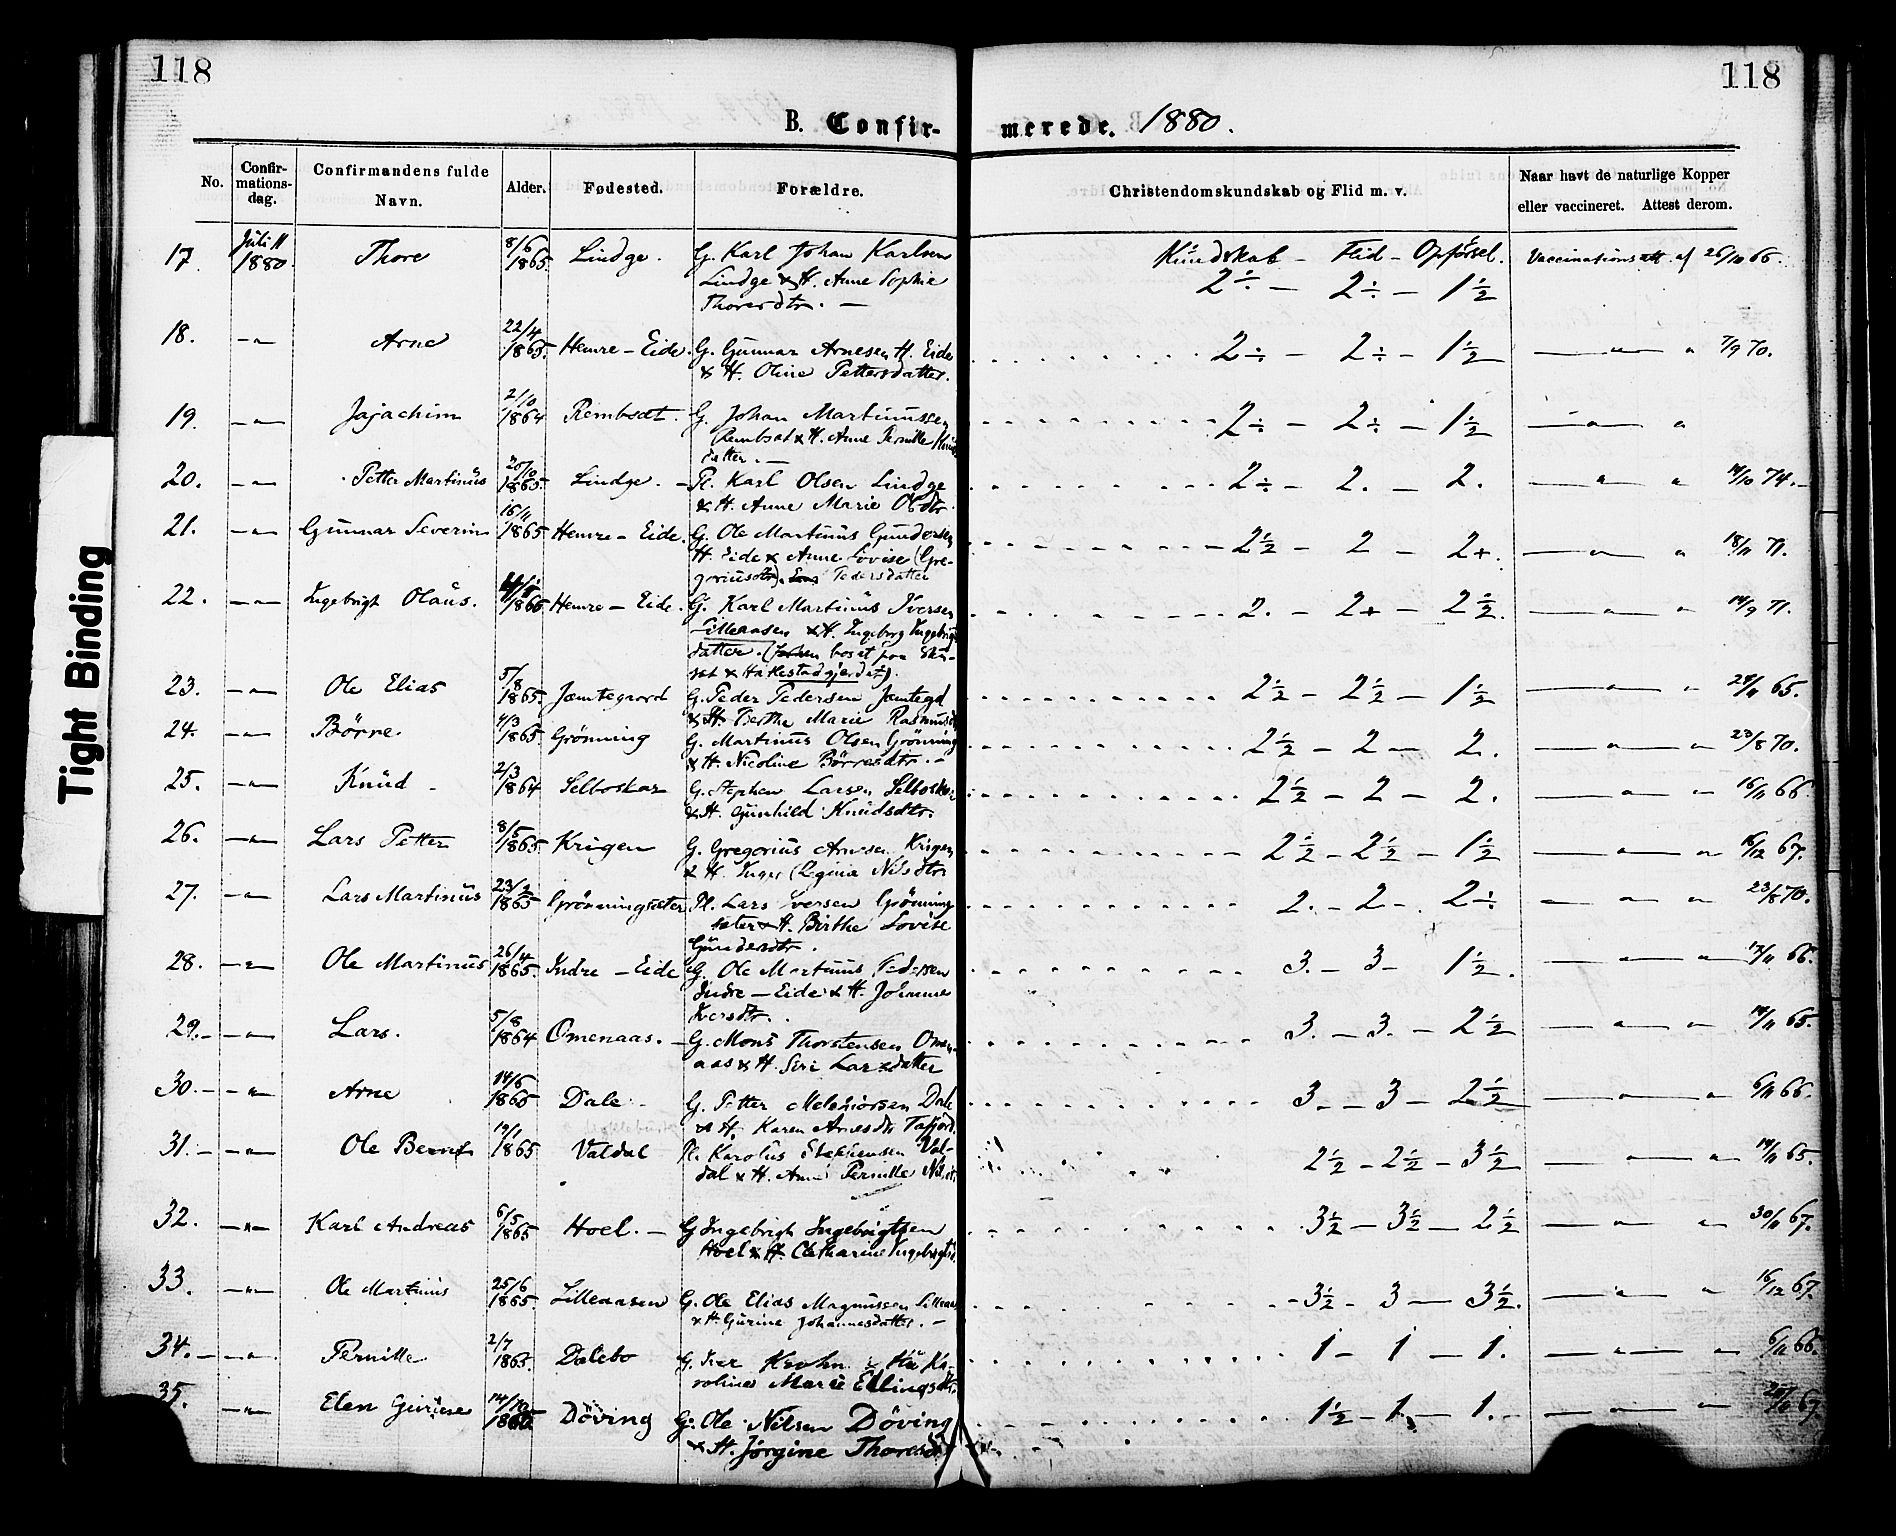 118
118
B. Confir-
merede. 1880.
No.
Confir-
mations-
dag.
Confirmandens fulde
Navn.
Alder.
Fødested.
Forældre.
Christendomskundskab og Flid m. v.
Naar havt de naturlige Kopper
eller vaccineret. Attest derom.
Kundskab - Flid - Opførsel.
17. Juli 11 1880. Thore 8/6 1865. Lindge. G. Karl Johan Karlsen 2÷ - 2÷ - 1½ Vaccinationsatt af 26/10 66.
Lindge & H. Anne Sophie
Thoresdtr. —
18. -"- Arne 22/4 1865. Hemre - Eide. G. Gunnar Arnesen H. Eide 2÷ - 2÷ - 1½ —"— " 7/9 70.
& H. Oline Pettersdatter.
19. -"- Jajachim 2/10 1864 Rembsdt. G. Johan Martinussen 2÷ - 2÷ - 1½ —"— "
Rembsat & H. Anne Pernille
datter. —
20. -"- Petter Martinus 1865. Lindge. - Pl. Karl Olsen Lindge 2÷ - 2. - 2. —"— " 14/10 74.-
& H. Anne Marie Olsdtr.
21. -"- Gunnar Severin 16/11 1865 Hemre - Eide. G. Ole Martinus Gundersen 2½ - 2 - 2+. —"— " 18/11 71.
H. Eide & Anne Lovise (Gre-
goriusdtr). Pedersdatter
22. -"- Ingebrigt Olaus. 1865 Hemre - Eide. G. Karl Martinus Iversen 2. - 2+ - 2½. —"— " 14/9 71.
Lilleaasen & H. Ingeborg Ingebrigts
datter. boset paa
& Hakestadgjerdet).
23. -"- Ole Elias 5/8 1865. Jæmtegaard G. Peder Pedersen Jæmtegd 2½ - 2½ - 1½ —"— " 24/11 65.
& H. Berthe Marie Rasmusd
24. -"- Börre. 4/3 1865. Grönning G. Martinus Olsen Grönning 2½ - 2 - 2. —"— " 23/8 70.
& H. Nicoline Börresdtr. -
25. -"- Knud - 2/3 1864 Selboskar G. Stephen Larsen Selboskar 2½ - 2 - 2. —"— " 16/11 66.
& H. Gunhild Knudsdtr.
26. -"- Lars Petter 8/5 1865. Krigen G. Gregorius Arnesen Krigen 2½ - 2½ - 1½ —"— " 16/12 67.
& H. Inger Regina Nilsdtr
27. -"- Lars Martinus 23/2 1865 Grönningsæter Pl. Lars Iversen Grönning 2. - 2 - 2÷ —"— " 23/8 70.
sæter & H. Birthe Lovise
Gundersdtr.
28. -"- Ole Martinus 26/4 1865. Indre - Eide G. Ole Martinus Pedersen 3. - 3 - 1½. —"— " 17/11 66.
Indre - Eide & H. Johanne
Iversdtr.
29.- -"- Lars. 5/8 1864 Omenaas. - G. Mons Thorstensen Omen- 3. - 3. - 2½ —"— " 14/11 65.
aas & H. Siri Larsdatter
30.- -"- Arne 14/6 1865 Dale - G. Petter Melchiorsen Dale 3. - 3 - 2½ —"— " 6/11 66.
& H. Karen Arnesdtr Tafjord.
31.- -"- Ole Bernt 1865. Valdal Pl. Karolus Stephensen Val- 2½ - 2½ - 3½ —"— " 14/11 65.
dal & H. Anne Pernille Nilsdtr.
32. -"- Karl Andreas 6/5 1865 Hoel. - G Ingebrigt Ingebrigtsen 3½ - 3½ - 2½ —"— " 30/11 67.
Hoel & H. Catharine Ingebrigtsd.
33. -"- Ole Martinus 25/6 1865. Lilleaasen G. Ole Elias Magnussen Lilleaas 3½ - 3 - 3½. —"— " 16/12 67.
& H. Gurine Johannesdatter. -
34.- -"- Pernille 2/7 1865. Dalebo G. Iver Krohn & Hu Ka- 1 - 1 - 1. —"— " 6/11 66.
roline Marie Ellingsdtr.
35. -"- Elen Guriese 14/10 Döving G. Ole Nilsen Döving 1½ - 1 - 1. —"— "
& H. Jørgine Thoresdtr
Tight Binding